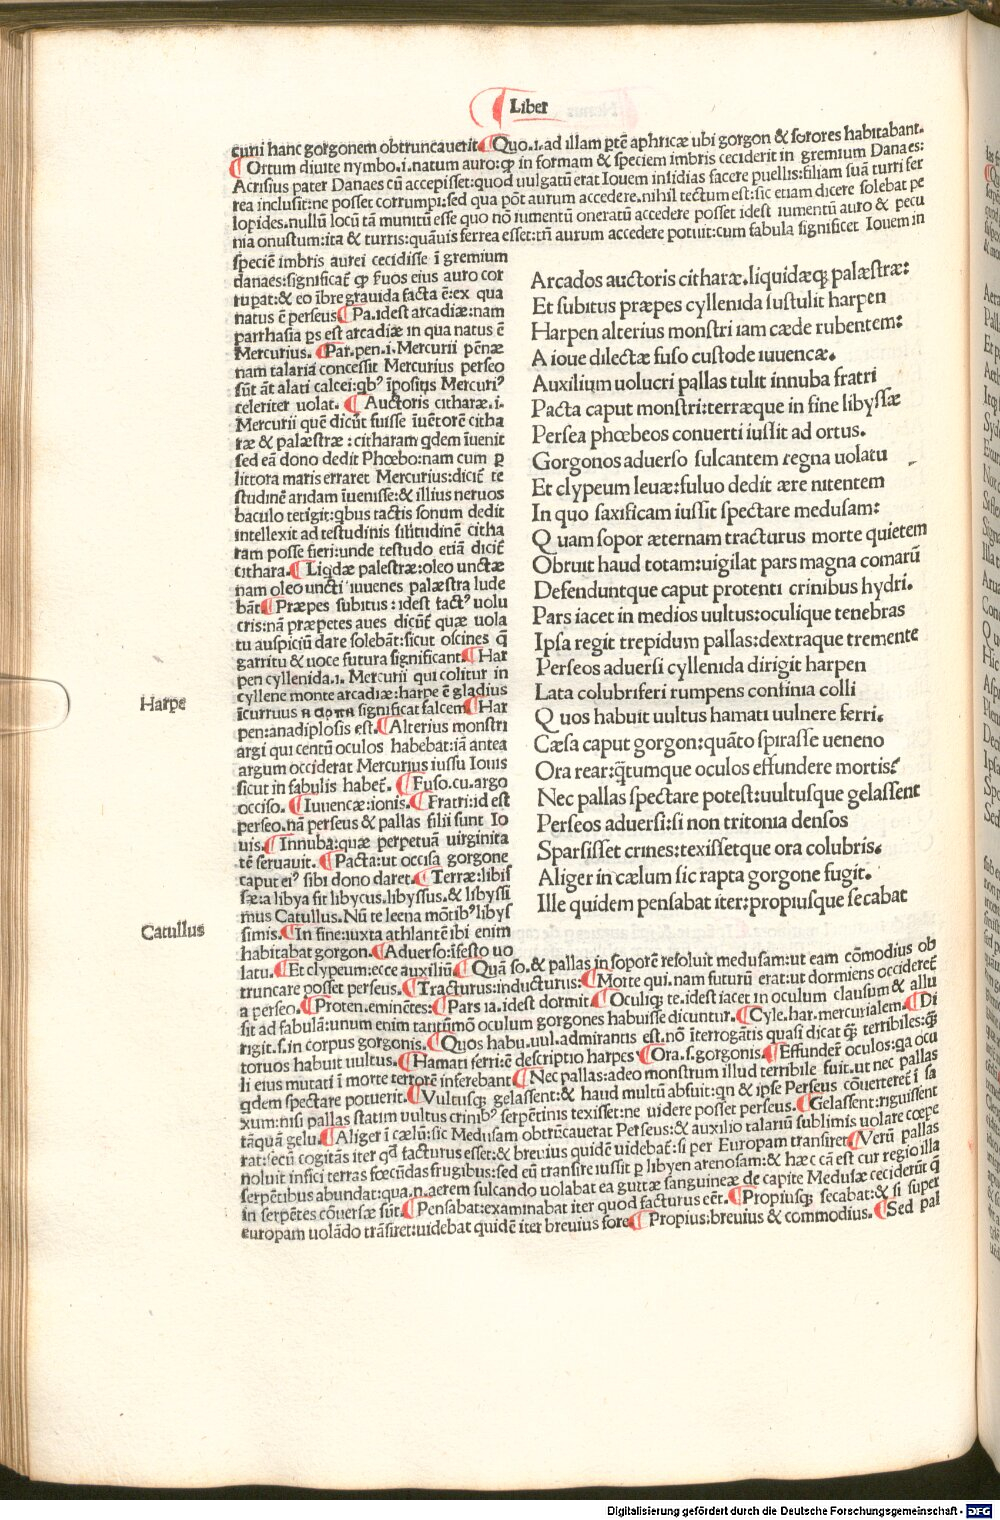 Liber
curii hanc gorgonem obtruncauerit.¶Quo.i.ad illam ꝑtē aphricæ ubi gorgon & sorores habitabant.
¶Ortum diuite nymbo.i.natum auro:ꝙ in formam & speciem imbris ceciderit in gremium Danaes:
Acrisius pater Danaes cū accepisset:quod uulgatū erat Iouem insidias facere puellis:filiam suā turri fer
rea inclusit:ne posset corrumpi:sed qua pōt aurum accedere.nihil tectum est:sic etiam dicere solebat pe
lopides.nullū locū tā munitū esse quo nō iumentū oneratū accedere posset idest iumentū auro & pecu
nia onustum:ita & turris:quāuis ferrea esset:tn̄ aurum accedere potuit:cum fabula significet Iouem in
speciē imbris aurei cecidisse ī gremium
danaes:significat̄ ꝙ ꝑuos eius auro cor
rupat:& eo ībre grauida facta ē:ex qua
natus ē perseus¶Pa.idest arcadiæ:nam
parrhasia ps est arcadiæ in qua natus ē
Mercurius. ¶Par.pen.i.Mercurii pēnæ
nam talaria concessit Mercurius perseo
sūt āt alati calcei:qb⁹ īpositus Mercuri⁹
celeriter uolat. ¶Auctoris citharæ.i.
Mercurii quē dicūt fuisse īuētorē citha
ræ & palæstræ:citharam qdem īuenit
sed eā dono dedit Phœbo:nam cum ꝑ
littora maris erraret Mercurius:dicit̄ te
studinē aridam īuenisse:& illius neruos
baculo tetigit:qbus tactis sonum dedit
intellexit ad testudinis silitudinē citha
ram posse fieri:unde testudo etiā dicit̄
cithara.¶Liqdæ palestræ:oleo unctæ
nam oleo uncti iuuenes palæstra lude
bāt¶Præpes subitus:idest fact⁹ uolu
cris:nā præpetes aues dicūt̄ quæ uola
tu auspiciū dare solebāt:sicut oscines q̄
garritu & uoce futura significant¶Har
pen cyllenida.i. Mercurii qui colitur in
cyllene monte arcadiæ:harpe ē gladius
īcurruus significat falcem¶Har
pen:anadiplosis est.¶Alterius monstri
argi qui centū oculos habebat:iā antea
argum occiderat Mercurius iussu Iouis
sicut in fabulis habet̄. ¶Fuso.cu.argo
occiso. ¶Iuuencæ:ionis.¶Fratri:id est
perseo.nā perseus & pallas filii sunt Io
uis.¶Innuba:quæ perpetuā uirginita
tē seruauit. ¶Pacta:ut occisa gorgone
caput ei⁹ sibi dono daret.¶Terræ:libis
sæ:a libya fit libycus.libyssus.& libyssi
mus Catullus.Nū te leena mōtib⁹ libys
simis.¶In fine:iuxta athlantē ibi enim
habitabat gorgon.¶Aduerso:īfesto uo
Harpe
Catullus
Arcados auctoris citharæ.liquidæq; palæstræ:
Et subitus præpes cyllenida sustulit harpen
Harpen alterius monstri iam cæde rubentem:
A ioue dilectæ fuso custode iuuencæ.
Auxilium uolucri pallas tulit innuba fratri
Pacta caput monstri:terræque in fine libyssæ
Persea phœbeos conuerti iussit ad ortus.
Gorgonos aduerso sulcantem regna uolatu
Et clypeum leuæ:fuluo dedit ære nitentem
In quo saxificam iussit spectare medusam:
Quam sopor æternam tracturus morte quietem
Obruit haud totam:uigilat pars magna comarū
Defenduntque caput protenti crinibus hydri.
Pars iacet in medios uultus:oculique tenebras
Ipsa regit trepidum pallas:dextraque tremente
Perseos aduersi cyllenida dirigit harpen
Lata colubriferi rumpens confinia colli
Quos habuit uultus hamati uulnere ferri.
Cæsa caput gorgon:quāto spirasse ueneno
Ora rear:q̄tumque oculos effundere mortis?
Nec pallas spectare potest:uultusque gelassent
Perseos aduersi:si non tritonia densos
Sparsisset crines:texissetque ora colubris.
Aliger in cælum sic rapta gorgone fugit.
Ille quidem pensabat iter:propiusque secabat
latu.¶Et clypeum:ecce auxiliū¶Quā so.& pallas in soporē resoluit medusam:ut eam cōmodius ob
truncare posset perseus.¶Tracturus:inducturus:¶Morte qui.nam futurū erat:ut dormiens occideret̄
a perseo.¶Proten.eminētes:¶Pars ia.idest dormit.¶Oculiq; te.idest iacet in oculum clausum & allu
sit ad fabulā:unum enim tantūmō oculum gorgones habuisse dicuntur.¶Cyle.har.mercurialem.¶Di
rigit.s.in corpus gorgonis.¶Quos habu.uul.admirantis est.nō īterrogātis quasi dicat q̄; terribiles:q̄;
toruos habuit uultus.¶Hamati ferri:ē descriptio harpes¶Ora.s.gorgonis.¶Effunder̄ oculos:qa ocu
li eius mutati ī morte terrorē inferebant¶Nec pallas:adeo monstrum illud terribile fuit.ut nec pallas
qdem spectare potuerit.¶Vultusq; gelassent:& haud multū absuit:qn & ipse Perseus cōuerteret̄ ī sa
xum:nisi pallas statim uultus crinib⁹ serpētinis texisset:ne uidere posset perseus.¶Gelassent:riguissent
tāquā gelu.¶Aliger ī cælū:sic Medusam obtrūcauerat Perseus:& auxilio talariū sublimis uolare cœpe
rat:secū cogitās iter qd̄ facturus esset:& breuius quidē uidebat̄:si per Europam transiret¶Verū pallas
noluit infici terras fœcūdas frugibus:sed eū transire iussit ꝑ libyen arenosam:& hæc cā est cur regio illa
serpētibus abundat:qua.n.aerem sulcando uolabat ea guttæ sanguineæ de capite Medusæ ceciderūt q̄
in serpētes cōuersæ sūt.¶Pensabat:examinabat iter quod facturus cēt.¶Propiusq; secabat:& si super
europam uolādo trāsiret:uidebat quidē iter breuius fore¶Propius:breuius & commodius.¶Sed pal
Digitalisierung gefördert durch die Deutsche Forschungsgemeinschaft - DFG